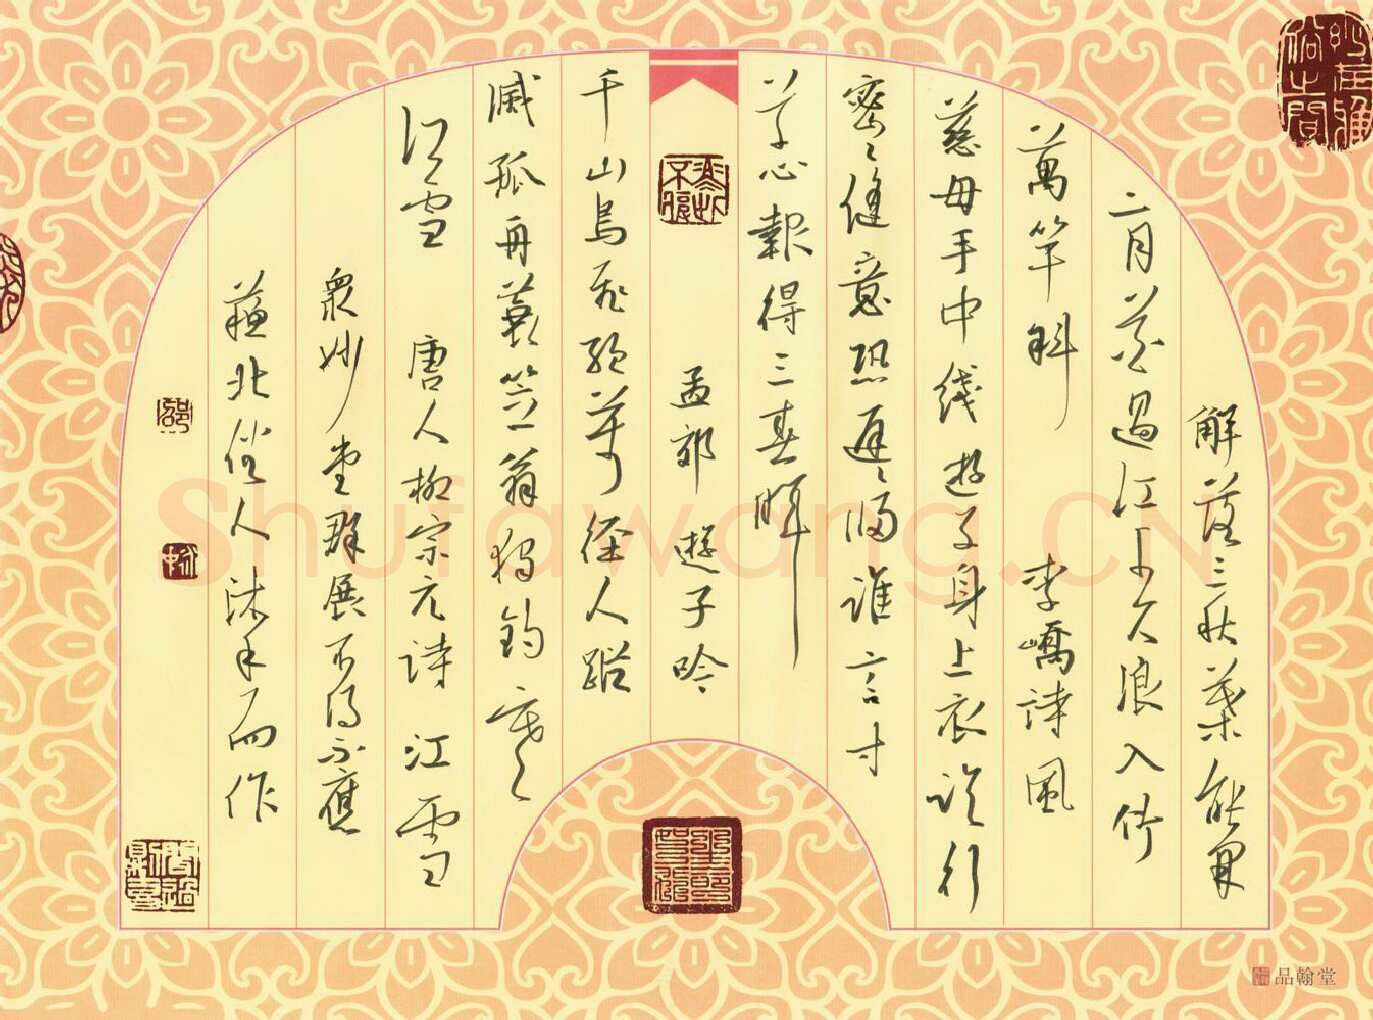 解落三秋葉能開
二月花過江千尺浪入竹
萬竿斜 李嶠詩風
慈母手中线遊子身上衣临行
密々縫意恐遲々歸誰言寸
草心報得三春暉
孟郊 遊子吟
千山鳥飛絕萬徑人蹤
滅孤舟蓑笠翁獨釣寒
江雪 唐人柳宗元詩江雪
衆妙堂群展不得不應
蘇北俗人沐手而作
品翰堂
Shufawang.CN